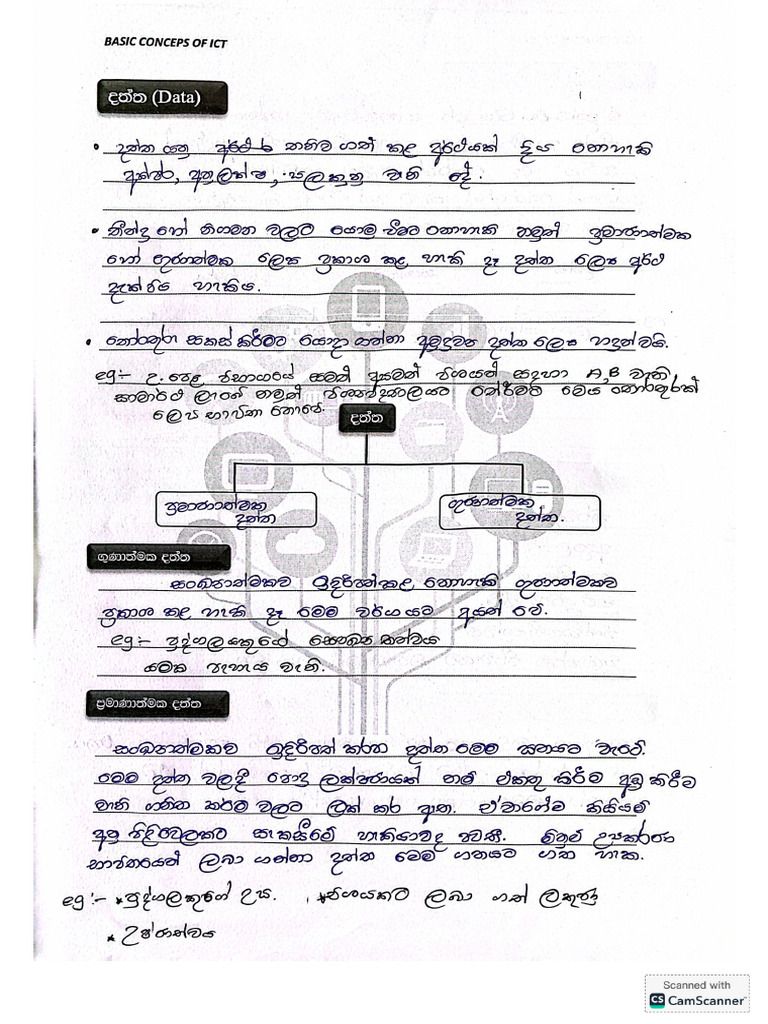 BASIC CONCEPS OF ICT
දත්ත (Data)
• දත්ත යනු තනිව ගත් කළ අර්ථයක් දිය නොහැකි
අක්ෂර, අනුලක්ෂ, පලකුනු වැනි දේ.
• තීන්දු හෝ නිගමන වලට යොමු වීමට නොහැකි නමුත් ප්‍රමාණාත්මක
හෝ ගුණාත්මක ලෙස ප්‍රකාශ කළ හැකි දෑ දත්ත ලෙස අර්ථ
දැක්විය හැකිය.
• තොරතුරු සකස් කිරීමට යොදා ගන්නා අමුද්‍රව්‍ය දත්ත ලෙස හඳුන්වයි.
eg:- උ.පෙළ විභාගයේ සමත් අසමත් විශයන් සදහා A,B වැනි
සාමාර්ථ ලාගේ නමුත් විශ්වවිද්‍යාලයට තේරීමට මෙය තොරතුරක්
ලෙස භාවිතා නොවේ.
දත්ත
ප්‍රමාණාත්මක
දත්ත
ගුණාත්මක
දත්ත.
ගුණාත්මක දත්ත
සංඛ්‍යාත්මකව ඉදිරිපත් කළ නොහැකි ගුණාත්මකව
ප්‍රකාශ කළ හැකි දෑ මෙම වර්ගයට අයත් වේ.
eg:- පුද්ගලයකුගේ සෞඛ්‍ය තත්වය
යමක පැහැය වැනි.
ප්‍රමාණාත්මක දත්ත
සංඛ්‍යාත්මකව ඉදිරිපත් කරන දත්ත මෙම ගනයට වැටේ.
මෙම දත්ත වලදී පොදු ලක්ෂණයක් නම් එකතු කිරීම අඩු කිරීම
වැනි ගනිත කර්ම වලට ලක් කර ඇත. ඒවාගේම කිසියම්
අනු පිළිවෙලකට සැකසීමේ හැකියාවද පවතී. මිනුම් උපකරණ
භාවිතයෙන් ලබා ගන්නා දත්ත මෙම ගනයට ගත හැක.
eg:- * පුද්ගලකුගේ උස. * විශයකට ලබා ගත් ලකුණු
* උෂ්ණත්වය
Scanned with
CS CamScanner